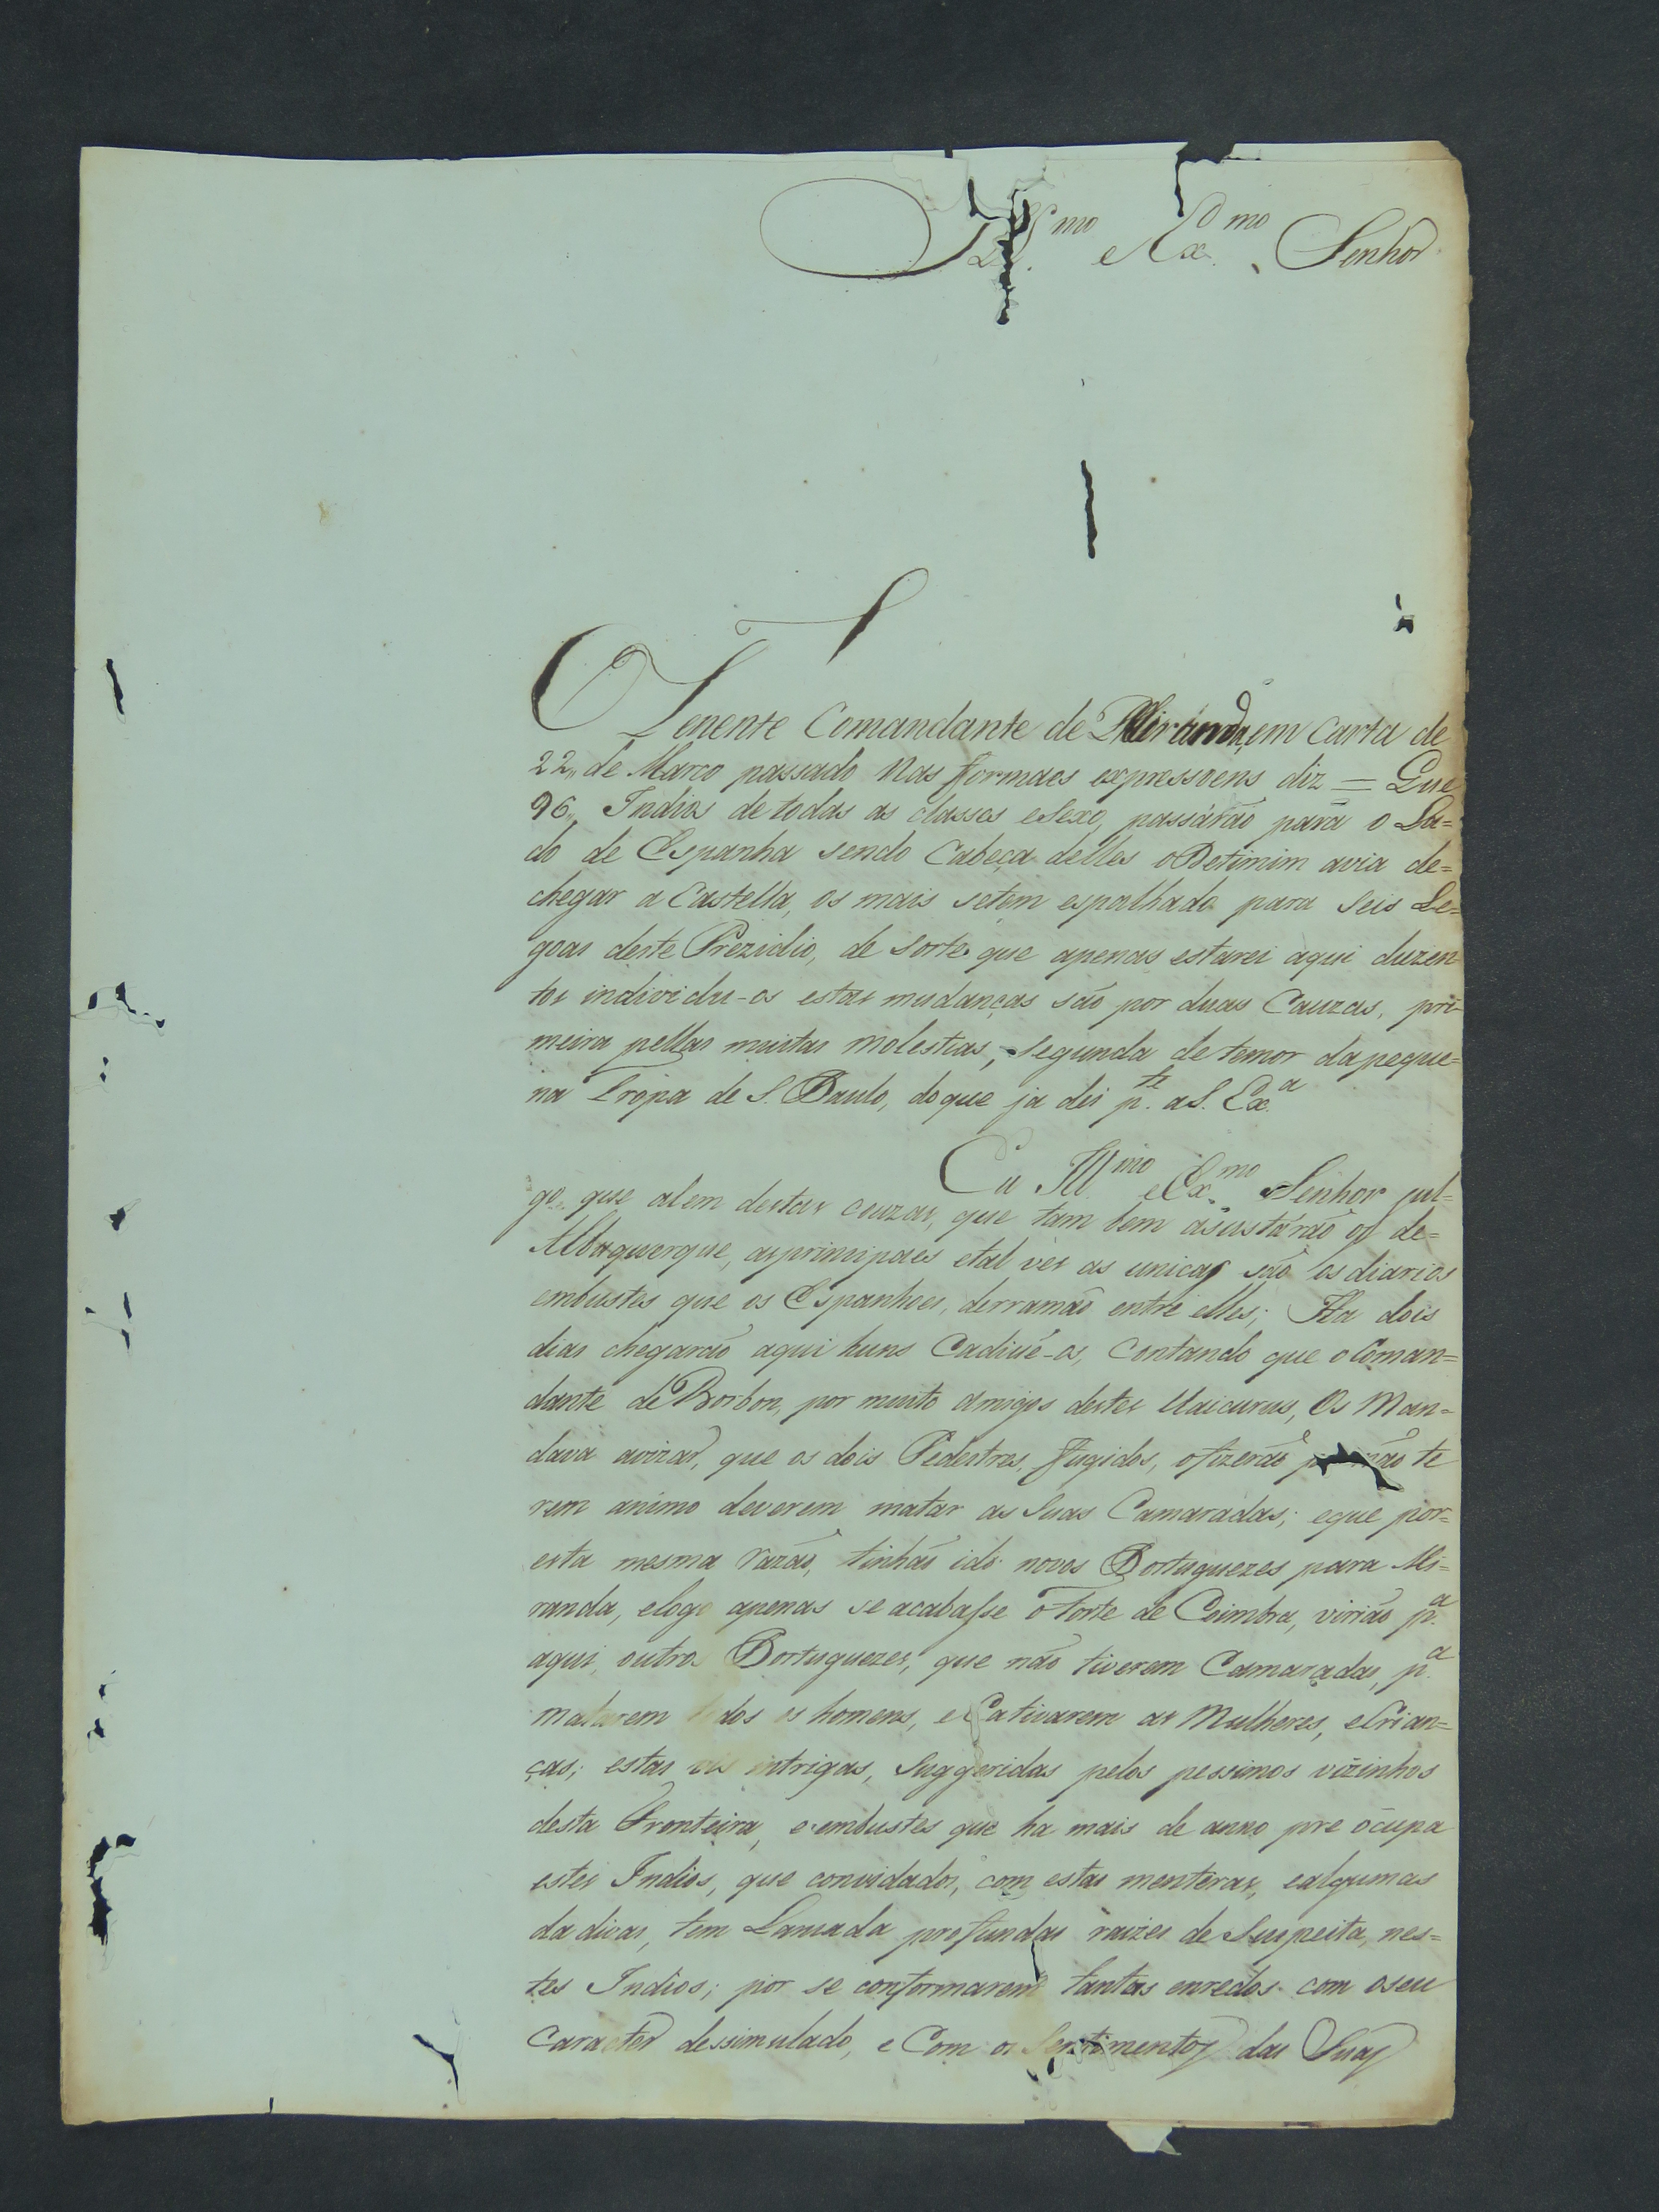 Ill.mo e Ex.mo Senhor
O Tenente Comandante de Miranda, em Carta de
22,, de Marco passado Nas formaes expressoens diz = Que
96,, Indios de todas as classes eSexo, passárão para o La=
do de Espanha sendo Cabeça delles oBetimim avia de=
chegar a Castella, os mais setem espalhado para Seis Le=
goas deste Prezidio, de Sorte que apenas estarei aqui duzen
tos individu-os estas mudanças são por duas Cauzas, pri-
meira pellas muitas molestias, Segunda de temor dapeque=
na Tropa de S. Paulo, doque ja dei p.te aS. Ex.a
Eu Ill.mo eEx.mo Senhor jul=
go que alem destas cauzas, que tam bem asustárão os de=
Albuquerque, asprincipaes etal vès as unicas são os diarios
embustes que os Espanhoes, derramão entre elles; Ha dois
dias chegarão aqui huns Cadiué-os, Contando que oComan=
dante de Borbon, por muito amigos destes Uaicurus, Os Man=
dava avizar, que os dois Pédestres, fugidos, ofizerão por não te
rem animo deverem matar as Suas Camaradas; eque por=
esta mesma razão, tinhão ido novos Portuguezes para Mi=
randa, elogo apenas se acabasse oForte de Coimbra, virião p.a
aqui outros Portuguezes, que não tiverem Camaradas, p.a
matarem todos os homens, e Cativarem as Mulheres, eCrian=
ças; estas vis intrigas, Suggeridas pelos pessimos vizinhos
desta Fronteira, e embustes que ha mais de anno pre ocupa
estes Indios, que convidados, com estas menteras, ealgumas
da divas, tem Lansada profundas raizes de Suspeita, nes=
tes Indios; por se conformarem tantos enredos com oseu
Caracter dessimulado, e Com os Sentimentos das Suas